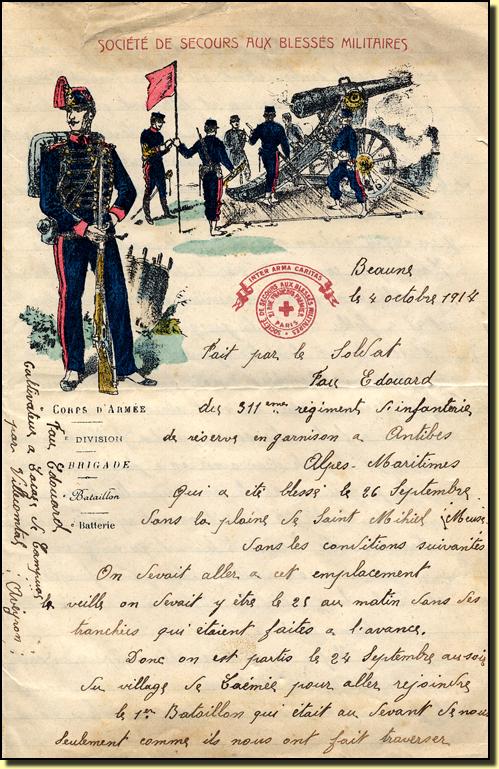 SOCIÉTÉ DE SECOURS AUX BLESSÉS MILITAIRES
INTER ARMA CARITAS
SOCIÉTÉ DE SECOURS AUX BLESSÉS MILITAIRES
21 RUE FRANÇOIS PREMIER
PARIS
Beaune
le 4 octobre 1914
Fait par le Soldat
Fau Edouard
du 311eme régiment d'infanterie
de réserve en garnison a Antibes
Alpes-Maritimes
Qui a été blessé le 26 Septembre
dans la plaine de Saint Mihiel (Meuse
dans les conditions suivantes
On devait aller a cet emplacement
la veille on devait y être le 25 au matin dans des
tranchées qui étaient faites a l'avance.
Donc on est partis le 24 Septembre au soir
du village de pour aller rejoindre
le 1er Bataillon qui était au devant de nous
seulement comme ils nous ont fait traverser
e CORPS D'ARMÉE
e DIVISION
BRIGADE
e Bataillon
e Batterie
Fau Edouard
Cultivateur a de
par Villecomtal (Aveyron)